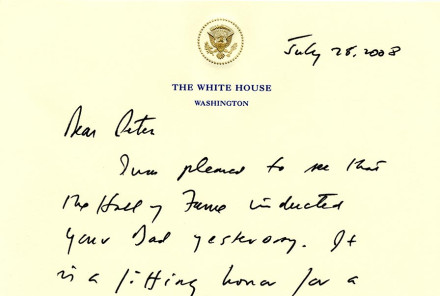 July 28, 2008
THE WHITE HOUSE
WASHINGTON
Dear Peter
I was pleased to see that
the Hall of Fame inducted
your Dad yesterday. It
is a fitting honor for a